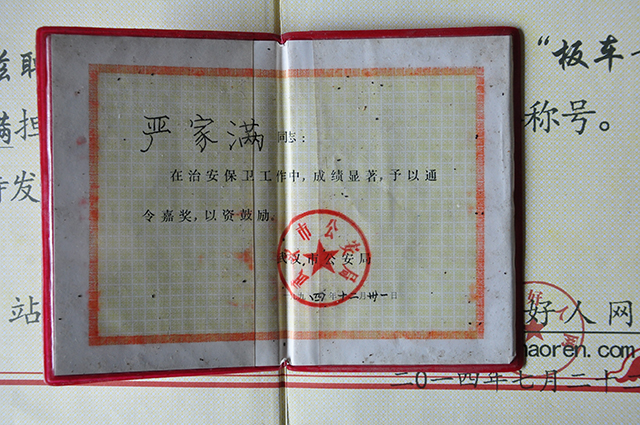 兹聘
“板车
满担
称号。
特发
严家满 同志：
在治安保卫工作中，成绩显著，予以通
令嘉奖，以资鼓励。
武汉市公安局
武汉市公安局
一九 四年十二月卅一日
站
好人网
haoren.com
二〇一四年七月二十